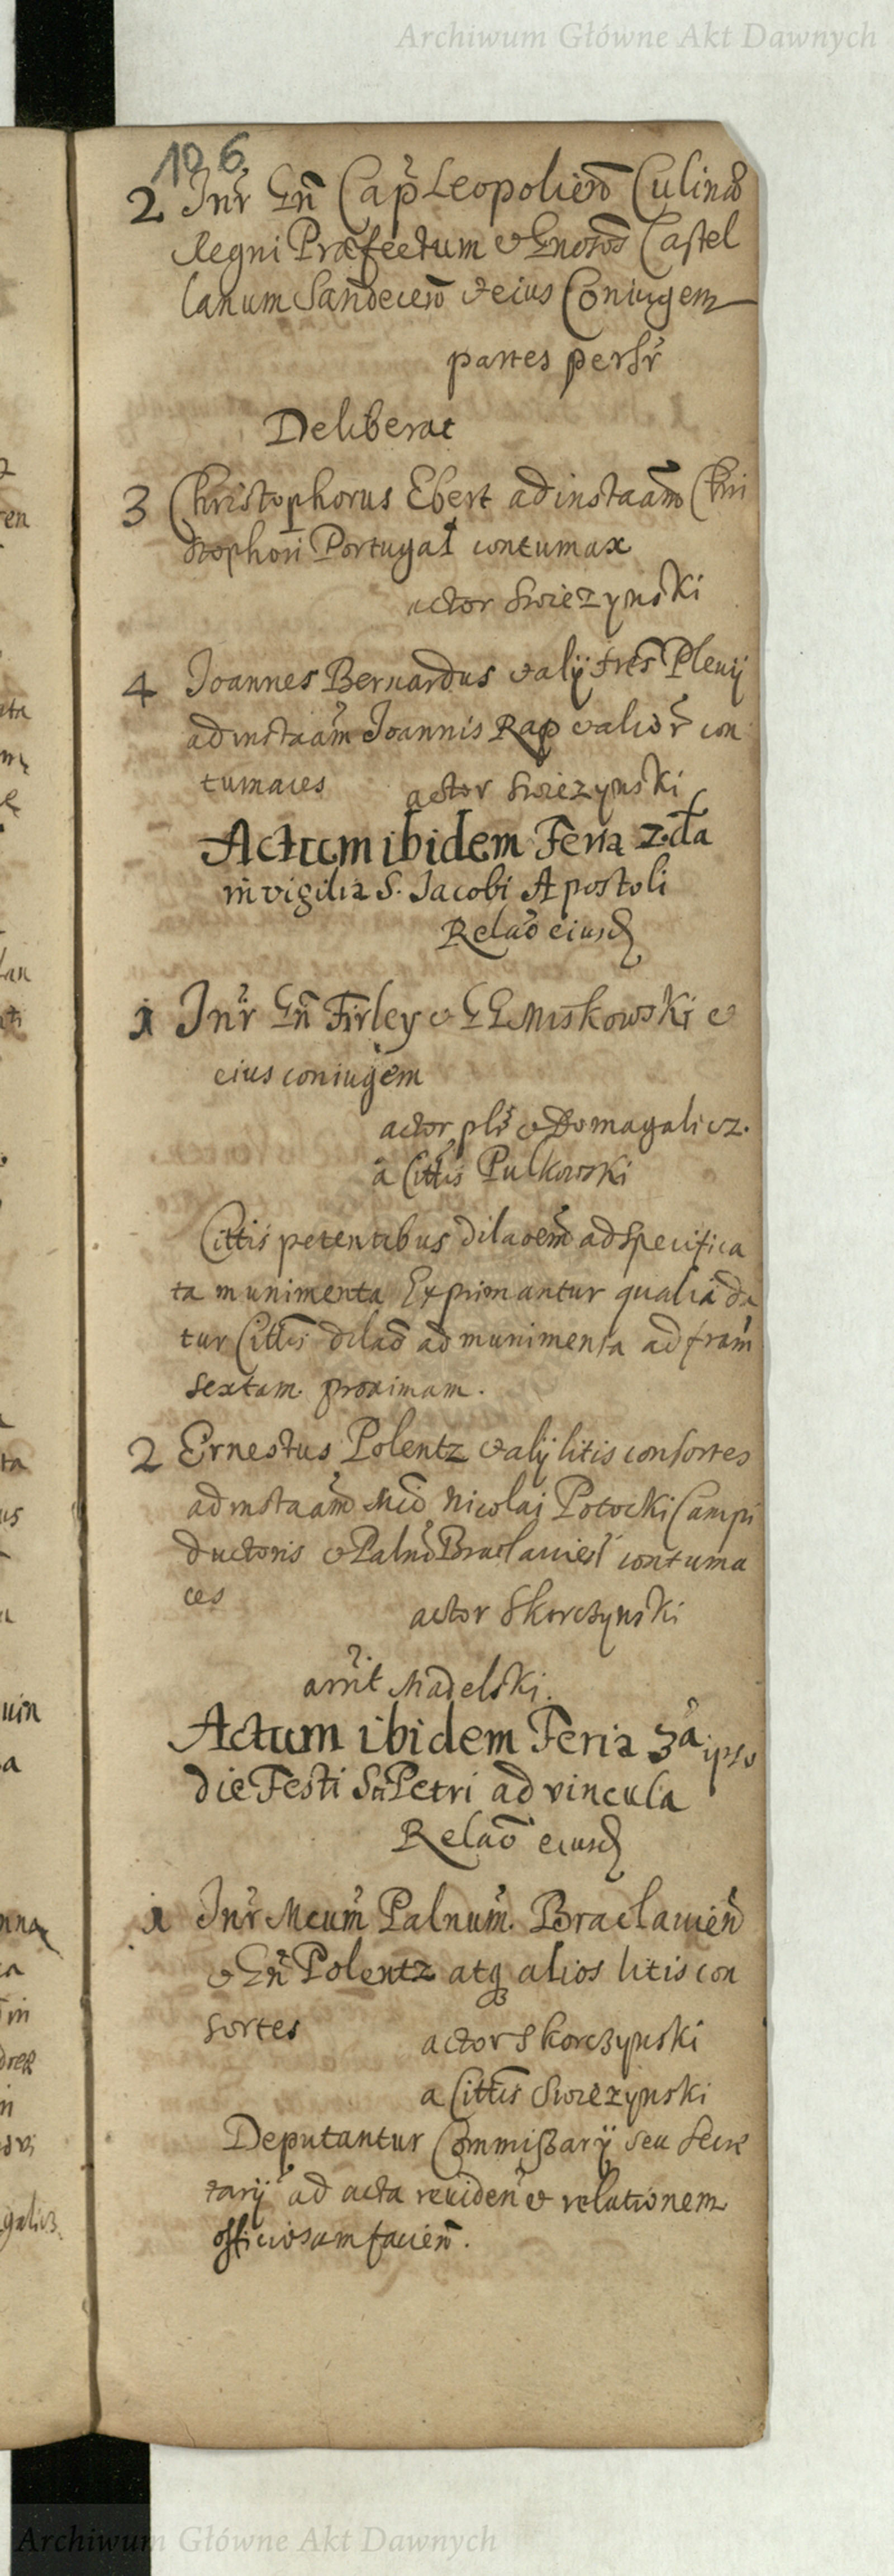 Archiwum Główne Akt Dawnych
106
2 Inr̃ Gñ Cap̃ Leopolień Culinæ
Regni Præfectum et Gnosos Castel
lanum Sandecen̄ et eius Coniugem
partes persr̃
Deliberat
3 Christophorus Ebert ad instaãm Chri
stophori Portugal contumax
actor Swiezynski
4 Joannes Bernardus et alij frēs Plenij
ad instaãm Joannis Rap et alior̃ con
tumaces actor Swiezynski
Actum ibidem Feria 2da
in vigilia S. Jacobi Apostoli
Relaõ eiusd
1 Inr̃ Gñ Firley et GG Miskowski et
eius coniugem
actor pls̃ et Domagalicz.
a Cittis Pulkowski
Cittis petentibus dilaõem ad specifica
ta munimenta Exprimantur qualia da
tur Cittis dilaõ ad munimenta ad fram̃
sextam proximam.
2 Ernestus Polentz et alij litis consortes
ad instaãm Mcĩ Nicolai Potocki Campi
ductoris et Palnĩ Braclauień contuma
ces
actor Skorczynski
arr̃it Madelski.
Actum ibidem Feria 3a ipso
die Festi Sti Petri ad vincula
Relaõ eiusd
1 Inr̃ Mcum̃ Palnum̃. Braclauień
et Gñ Polentz atq alios litis con
sortes actor Skorczynski
a Cittis Swiezynski
Deputantur Commissarij seu Secre
tarij ad acta reuideñ et relationem
officiosam facień.
Archiwum Główne Akt Dawnych